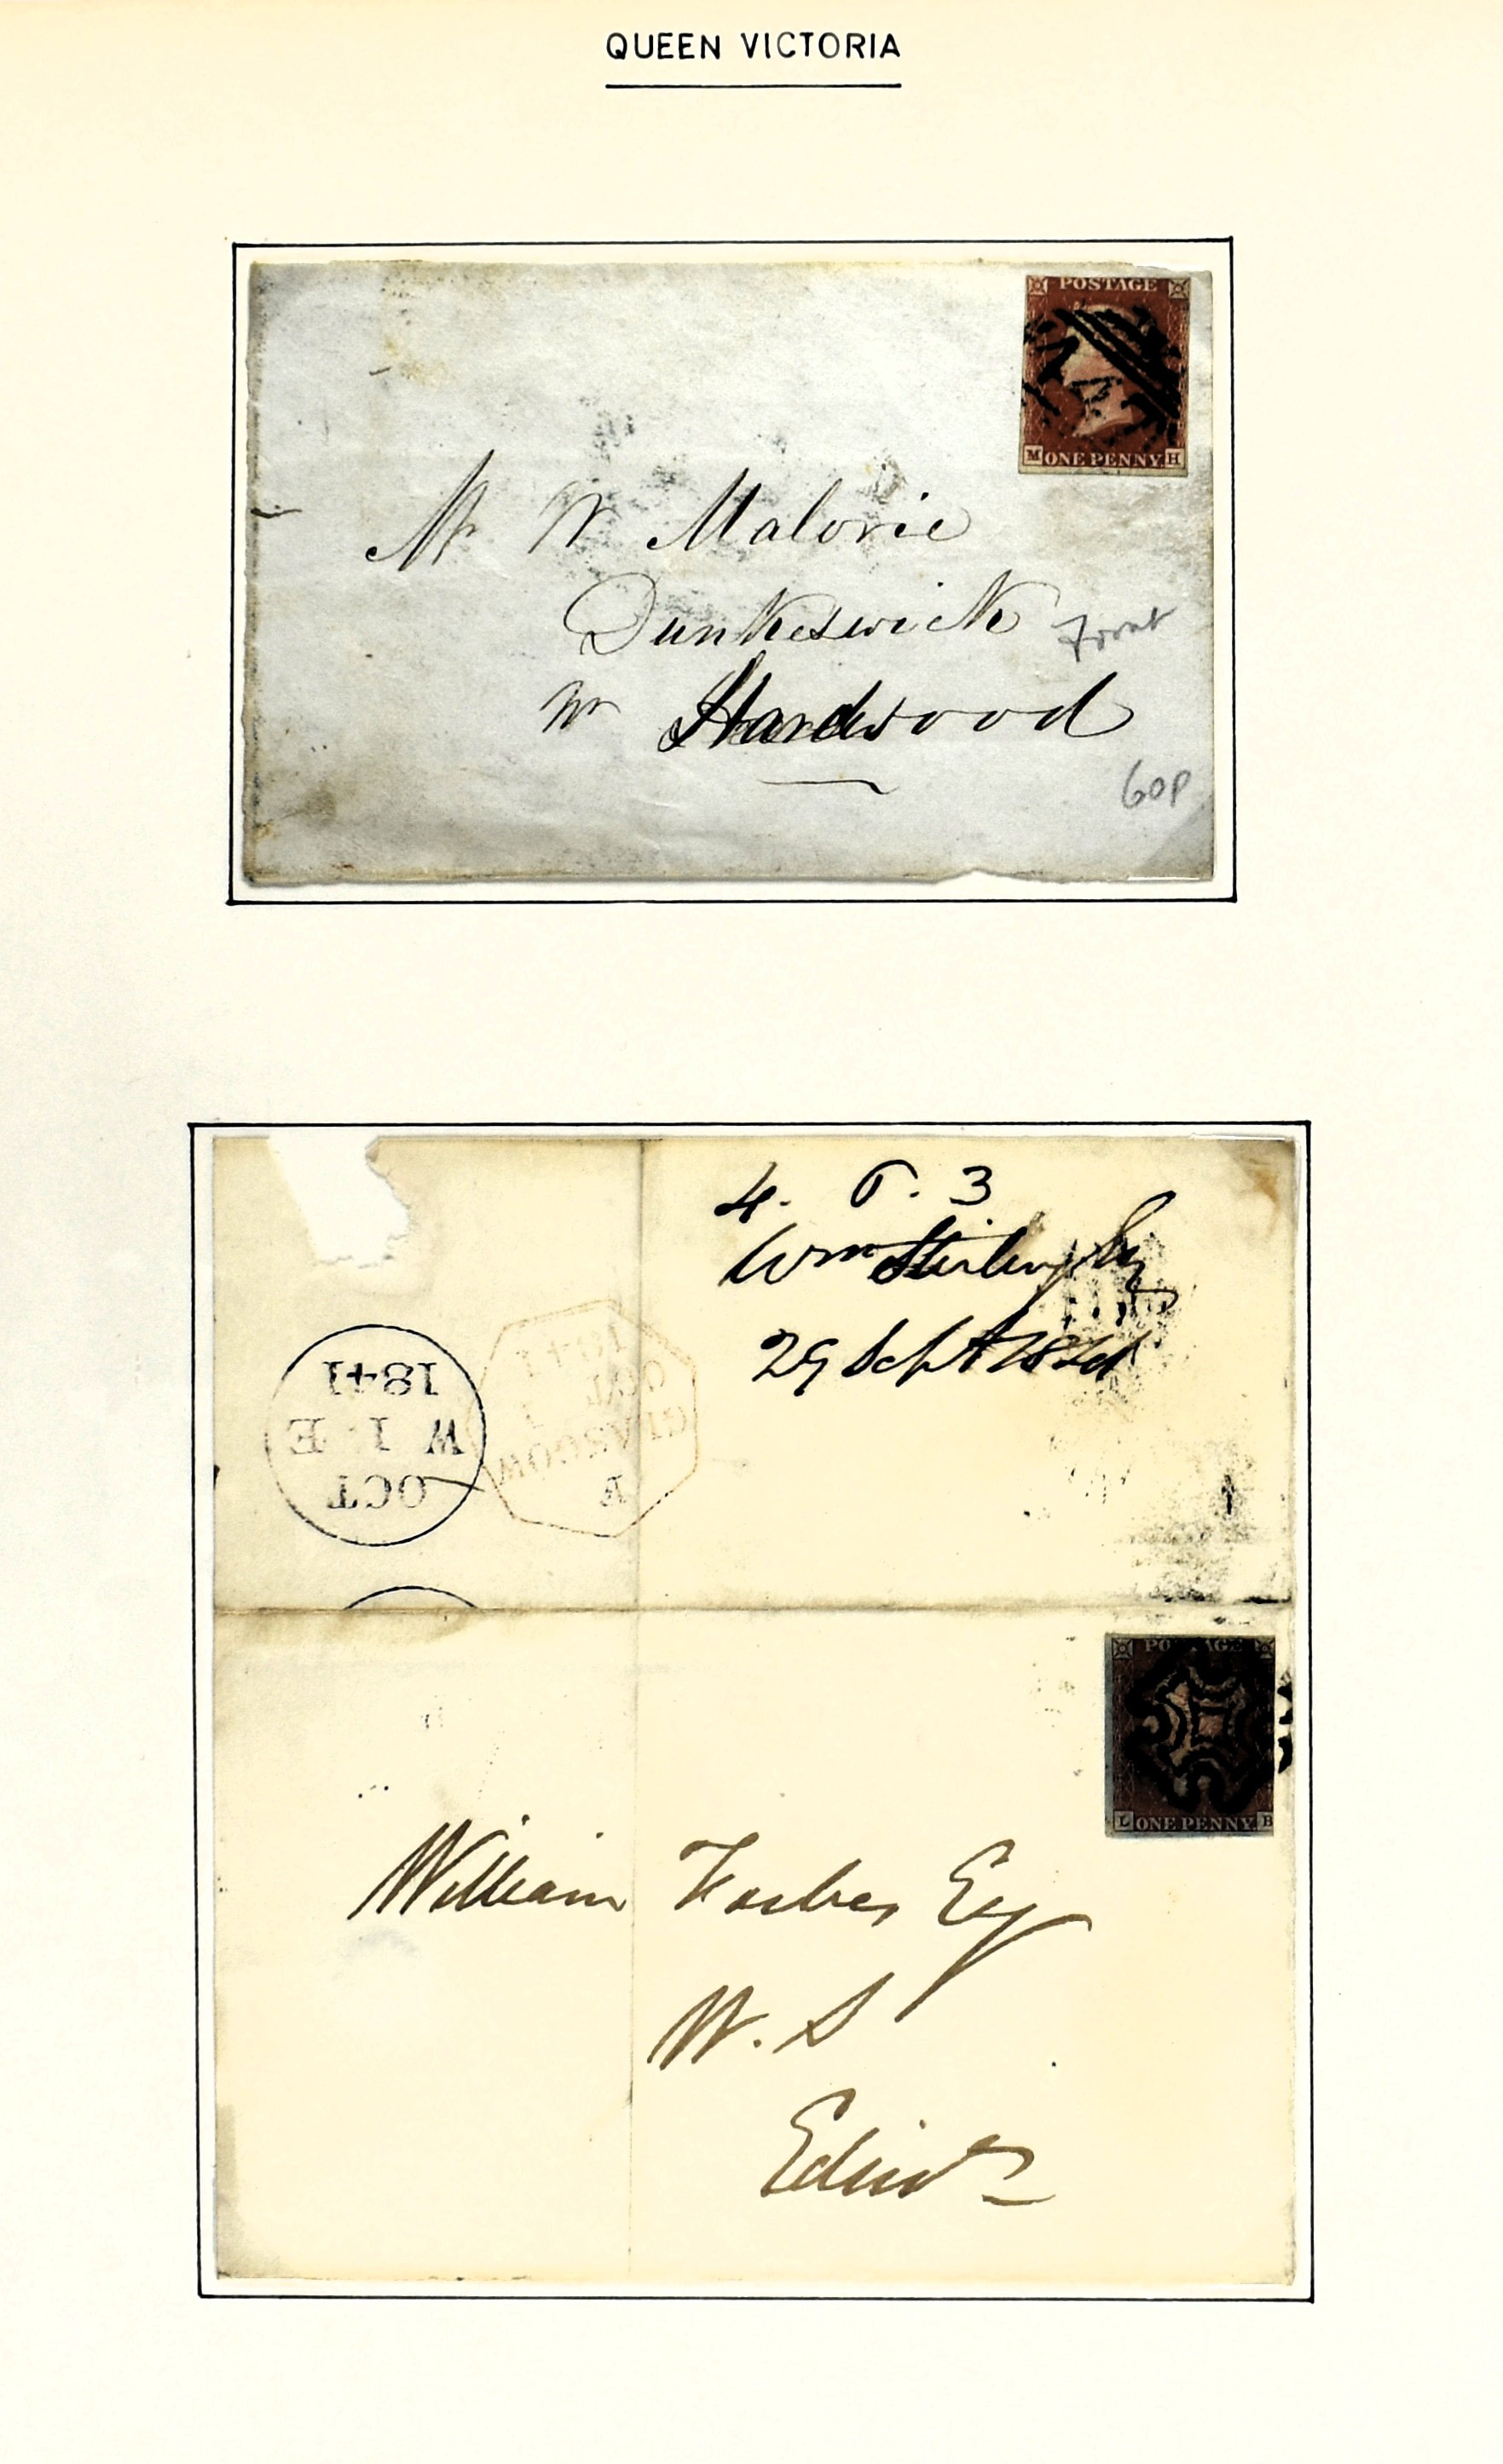 QUEEN VICTORIA
POSTAGE
M ONE PENNY H
Mr W Malorie
Dunkeswick
Nr Hardwood
front
60P
4. 6. 3
Wm Stirling Esq
29 Sept 1841
1841
W 1 E
OCT
1841
OCT
1
GLASGOW
PO AGE
L ONE PENNY B
William Forbes Esq
W. S
Edinr